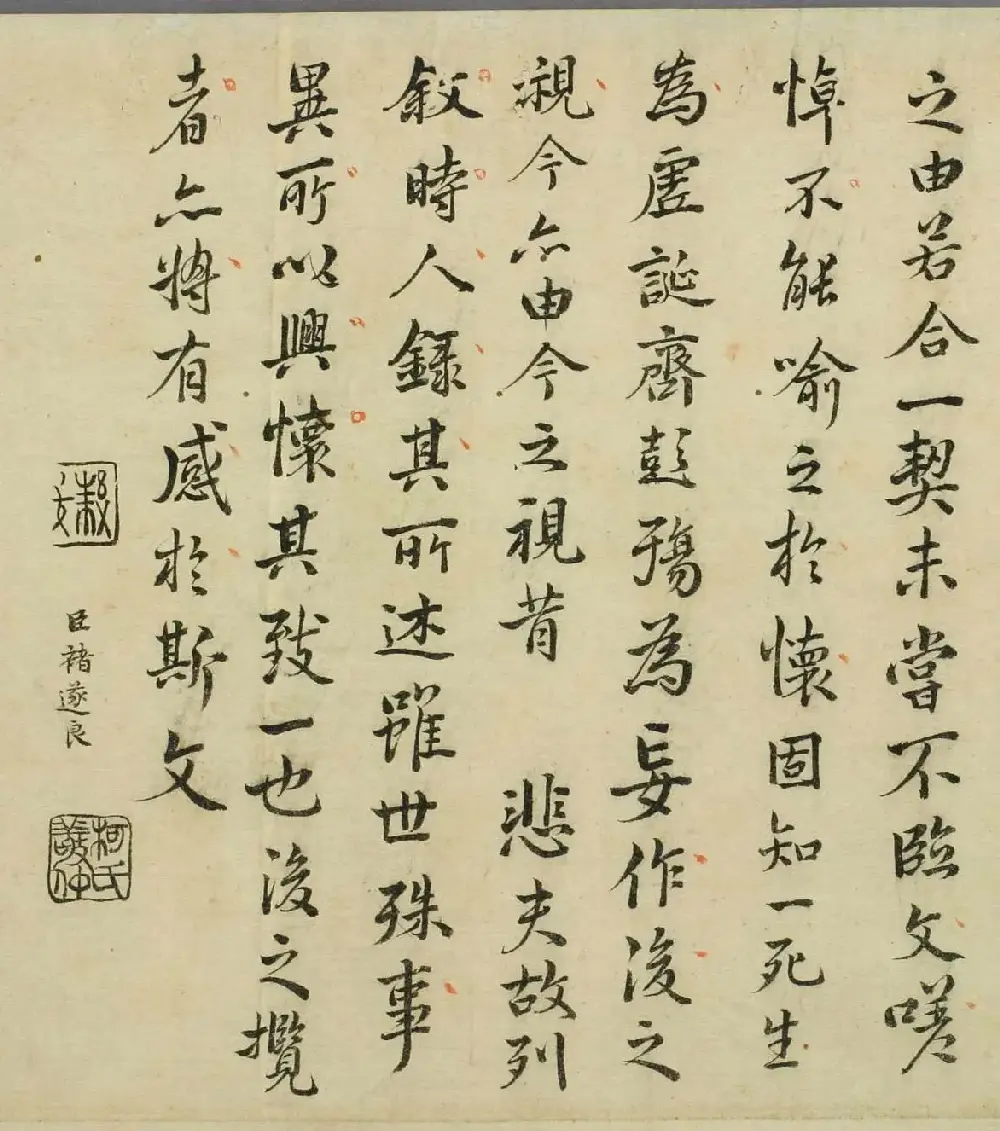 之由若合一契未嘗不臨文嗟
悼不能喻之於懷固知一死生
為虛誕齊彭殤為妄作後之
視今亦由今之視昔 悲夫故列
叙時人錄其所述雖世殊事
異所以興懷其致一也後之攬
者亦將有感於斯文
臣褚遂良
柯氏